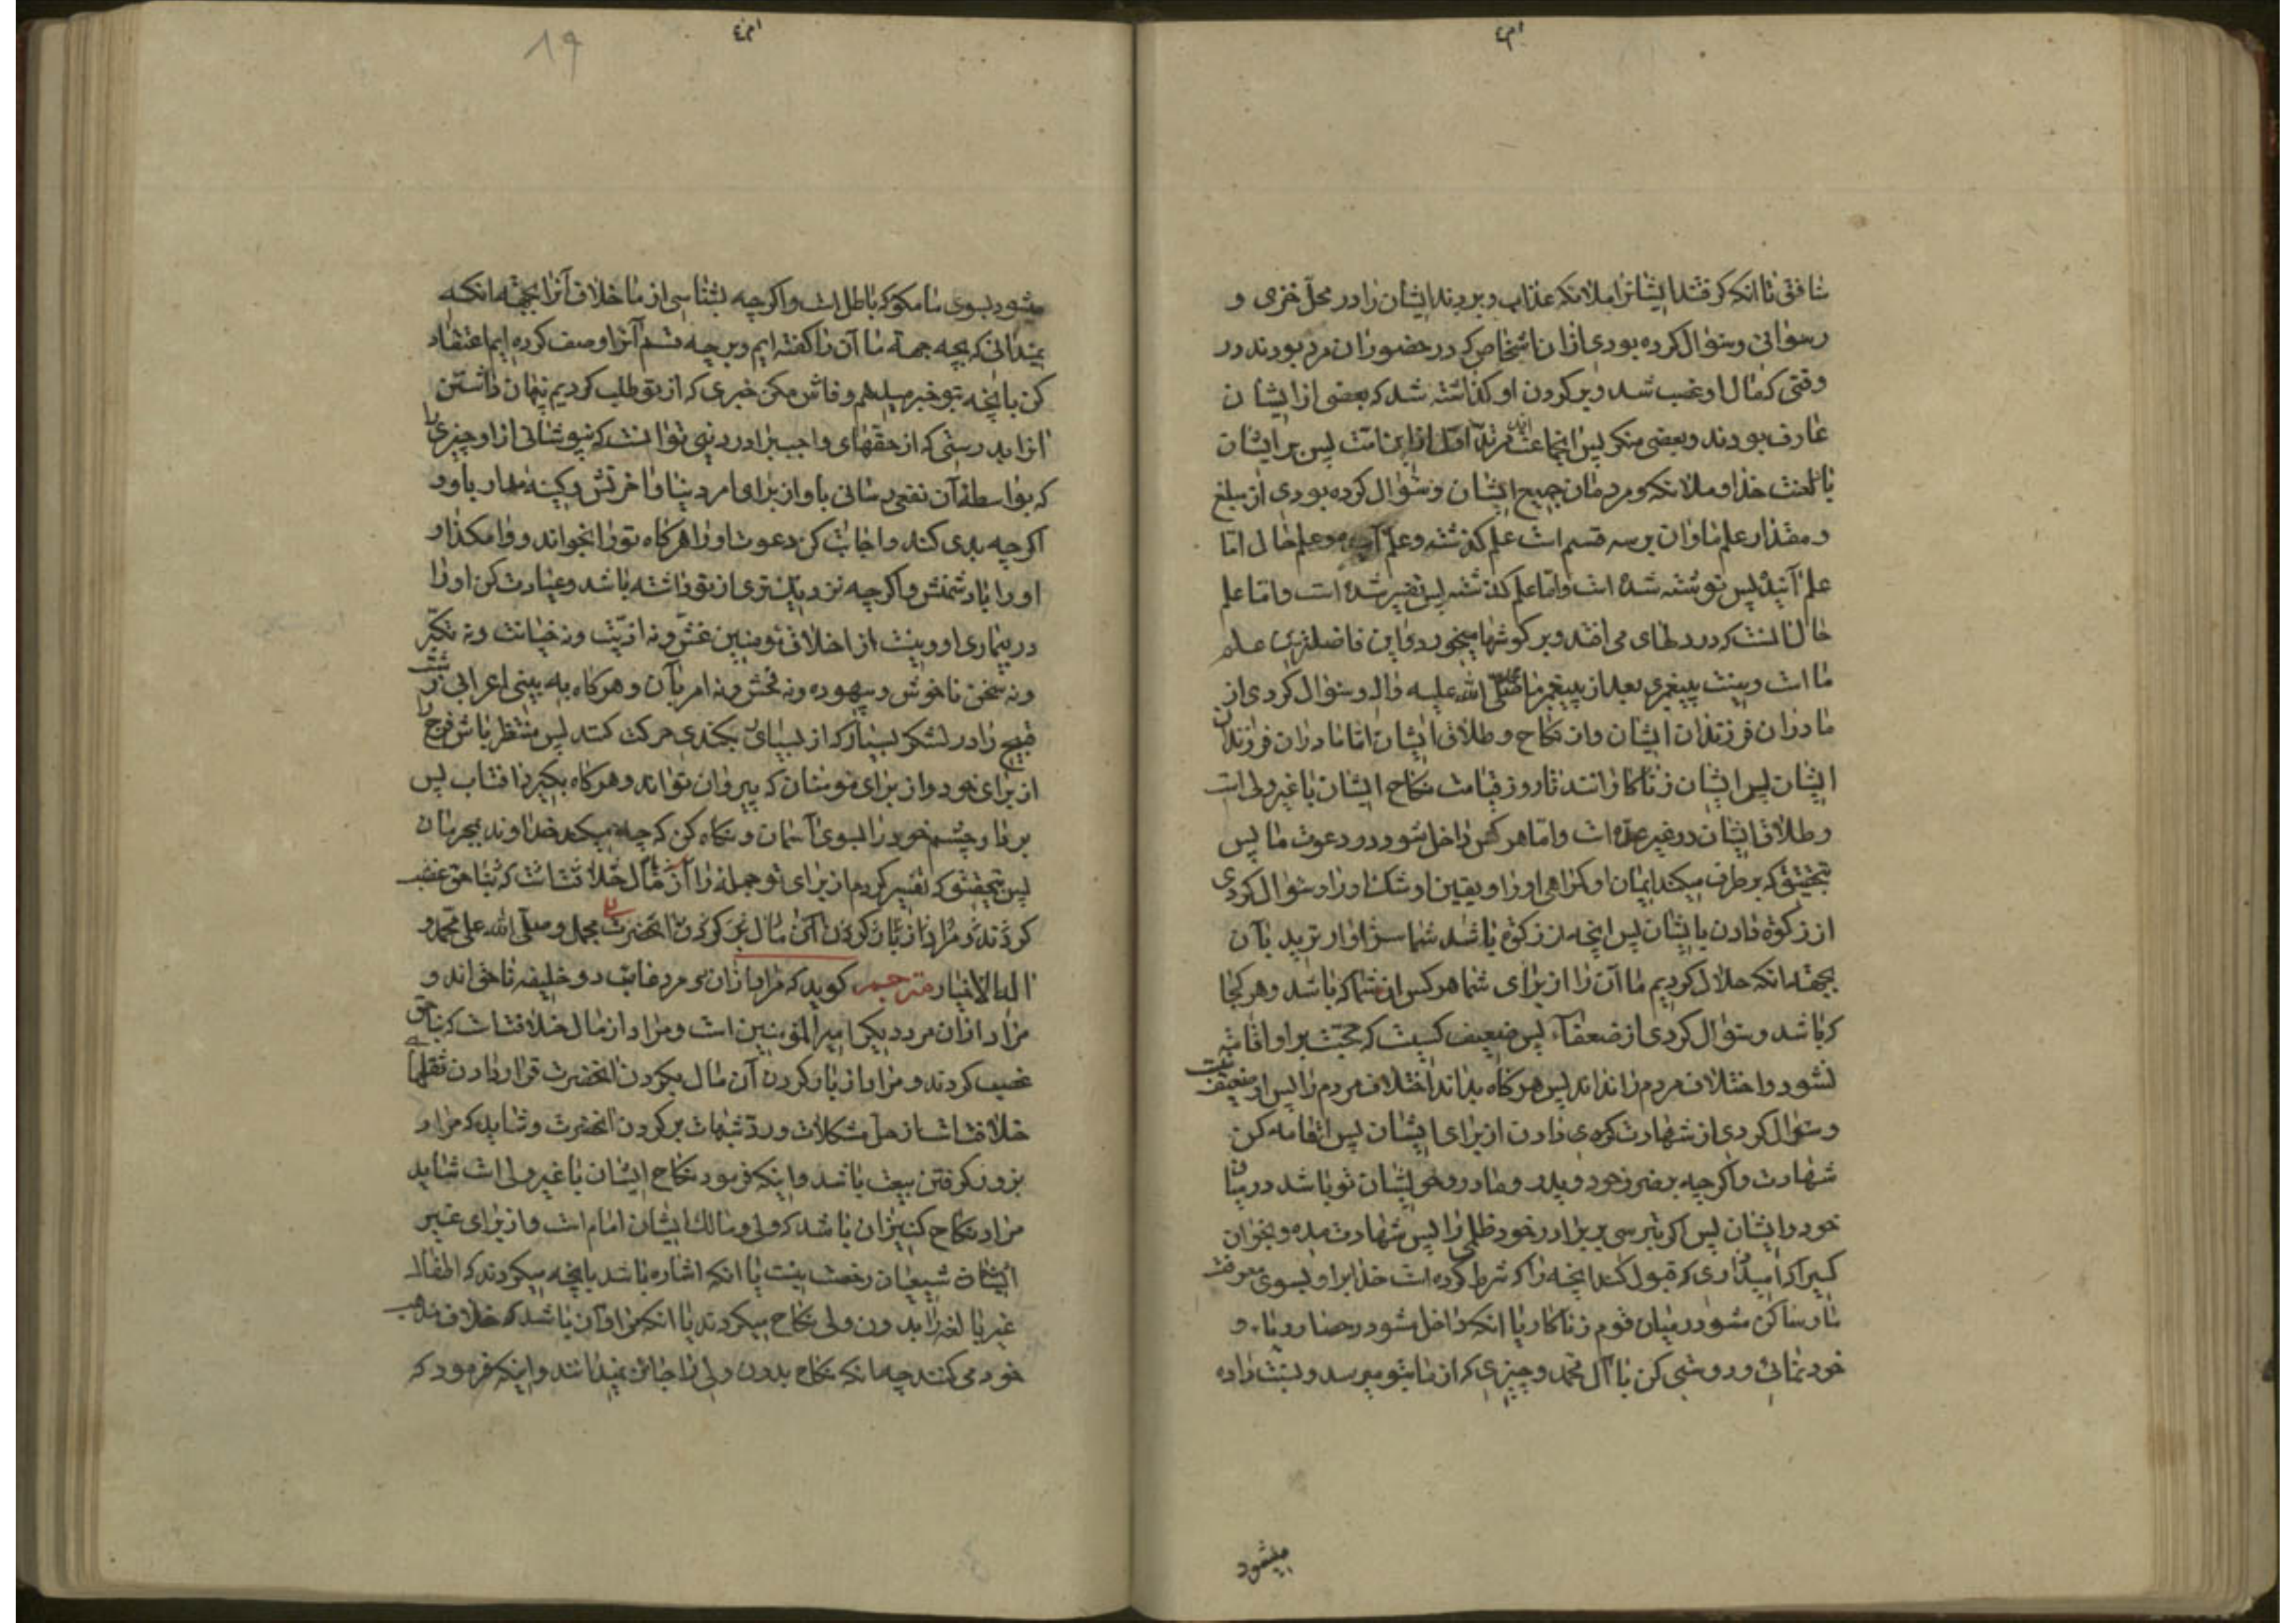 شافتی تا انکه گرفتند ایشانرا ملائکه عذاب و بردند ایشان را در محل خزی و
رسوائی و سؤال کرده بودی ازان اشخاص که در حضور ان مرد بودند در
وقتی که مال او غصب شد و بر کردن او کذاشته شد که بعضی از ایشان
عارف بودند و بعضی منکر پس انجماعت مرتد اول از این امت پس بر ایشان
باد لعنت خدا و ملائکه و مردمان جمیع ایشان و سؤال کرده بودی از مبلغ
و مقدار علم ما و ان بر سه قسم است علم کذشته و علم آینده و علم حال اما
علم آینده پس نوشته شده است و اما علم کذشته پس تفسیر شده است و اما علم
حال انست که در دلهای می افتد و بر کوشها میخورد و این فاضلترین علم
ما است و نیست پیغمبری بعد از پیغمبر ما محمد صلی الله علیه واله و سؤال کردی از
مادران فرزندان ایشان و از نکاح و طلاق ایشان اما مادران فرزندان
ایشان پس ایشان زناکارانند تا روز قیامت نکاح ایشان با غیر ولی است
و طلاق ایشان در غیر عده است و اما هر کس داخل شود در دعوت ما پس
بتحقیق که بر طرف میکند ایمان او کمراهی او را و یقین او شک او را و سؤال کردی
از زکوة دادن بایشان پس انچه از زکوة باشد شما سزاوارترید بآن
بجهة انکه حلال کردیم ما آن را از برای شما هر کس از شما که باشد و هر کجا
که باشد و سؤال کردی از ضعفاء پس ضعیف کسیست که حجت بر او اقامه
نشود و اختلاف مردم را نداند پس هر کاه بداند اختلاف مردم را پس او ضعیف نیست
و سؤال کردی از شهادت دادن از برای ایشان پس اقامه کن
شهادت و اکر چه بر ضرر خود و پدر و مادر و خویشان تو باشد در میان
خود و ایشان پس اکر بترسی بر برادر خود ظلمی را پس شهادت مده و بخوان
کسیرا که امیدواری که قبول کند انچه را که شرط کرده است خدا برا و بسوی معرفت
ما و ساکن مشو در میان قوم زناکار یا انکه داخل مشو در حصار ریاء و
خودنمائی و دوستی کن با آل محمد و چیزی که از ما بتو میرسد و نسبت داده
میشود
میشود بسوی ما مکو که باطل است و اکر چه بشناسی از ما خلاف آنرا بجهة انکه
نمیدانی که بچه جهة ما آن را کفته ایم و بر چه قسم آنرا وصف کرده ایم اعتقاد
کن بانچه بتو خبر میدهم و فاش مکن خبری که از تو طلب کردیم پنهان داشتن
انرا بدرستی که از حقهای واجب برادر دینی تو انست که نپوشانی از او چیزی را
که بواسطه آن نفعی رسانی باو از برای امر دنیا و اخرتش و کینه مدار باو و
اکر چه بدی کند و اجابت کن دعوت او را هر کاه تو را بخواند و وامکذار
او را با دشمنش و اکر چه نزدیکتری از تو داشته باشد و عیادت کن او را
در بیماری او و نیست از اخلاق مؤمنین غش و نه اذیت و نه خیانت و نه تکبر
و نه سخن ناخوش و بیهوده و نه فحش و نه امر بآن و هر کاه به بینی اعرابی زشت
قبیح را در لشکر بسیار که از بسیاری بکندی حرکت کند پس منتظر باش فرج را
از برای خود و از برای مؤمنان که پیروان تواند و هر کاه بکیرد افتاب پس
بردار چشم خود را بسوی آسمان و نکاه کن که چه میکند خداوند بمجرمان
پس بتحقیق که تفسیر کردم از برای تو جمله را از مال خلافتست که بناحق غصب
کردند و مراد از بار کردن آن مال بر کردن انحضرت مجمل و صلی الله علی محمد و
اله الاخیار مترجم کوید که مراد ازان دو مرد غاصب دو خلیفه ناحق اند و
مراد ازان مرد دیکر امیرالمؤمنین است و مراد از مال خلافتست که بناحق
غصب کردند و مراد از بار کردن آن مال بکردن انحضرت قرار دادن ثقلهای
خلافتست از حل مشکلات و رد شبهات بر کردن انحضرت و شاید که مراد
بزور کرفتن بیعت باشد و اینکه فرمود نکاح ایشان با غیر ولی است شاید
مراد نکاح کنیزان باشد که ولی و مالک ایشان امام است و از برای غیر
شیعیان رخصت نیست یا انکه اشاره باشد بانچه میکردند که اطفال
غیر بالغ را بدون ولی نکاح میکردند یا انکه مراد آن باشد که خلاف مذهب
خود می کنند چه انکه نکاح بدون ولی را جائز نمیدانند و اینکه فرمود که